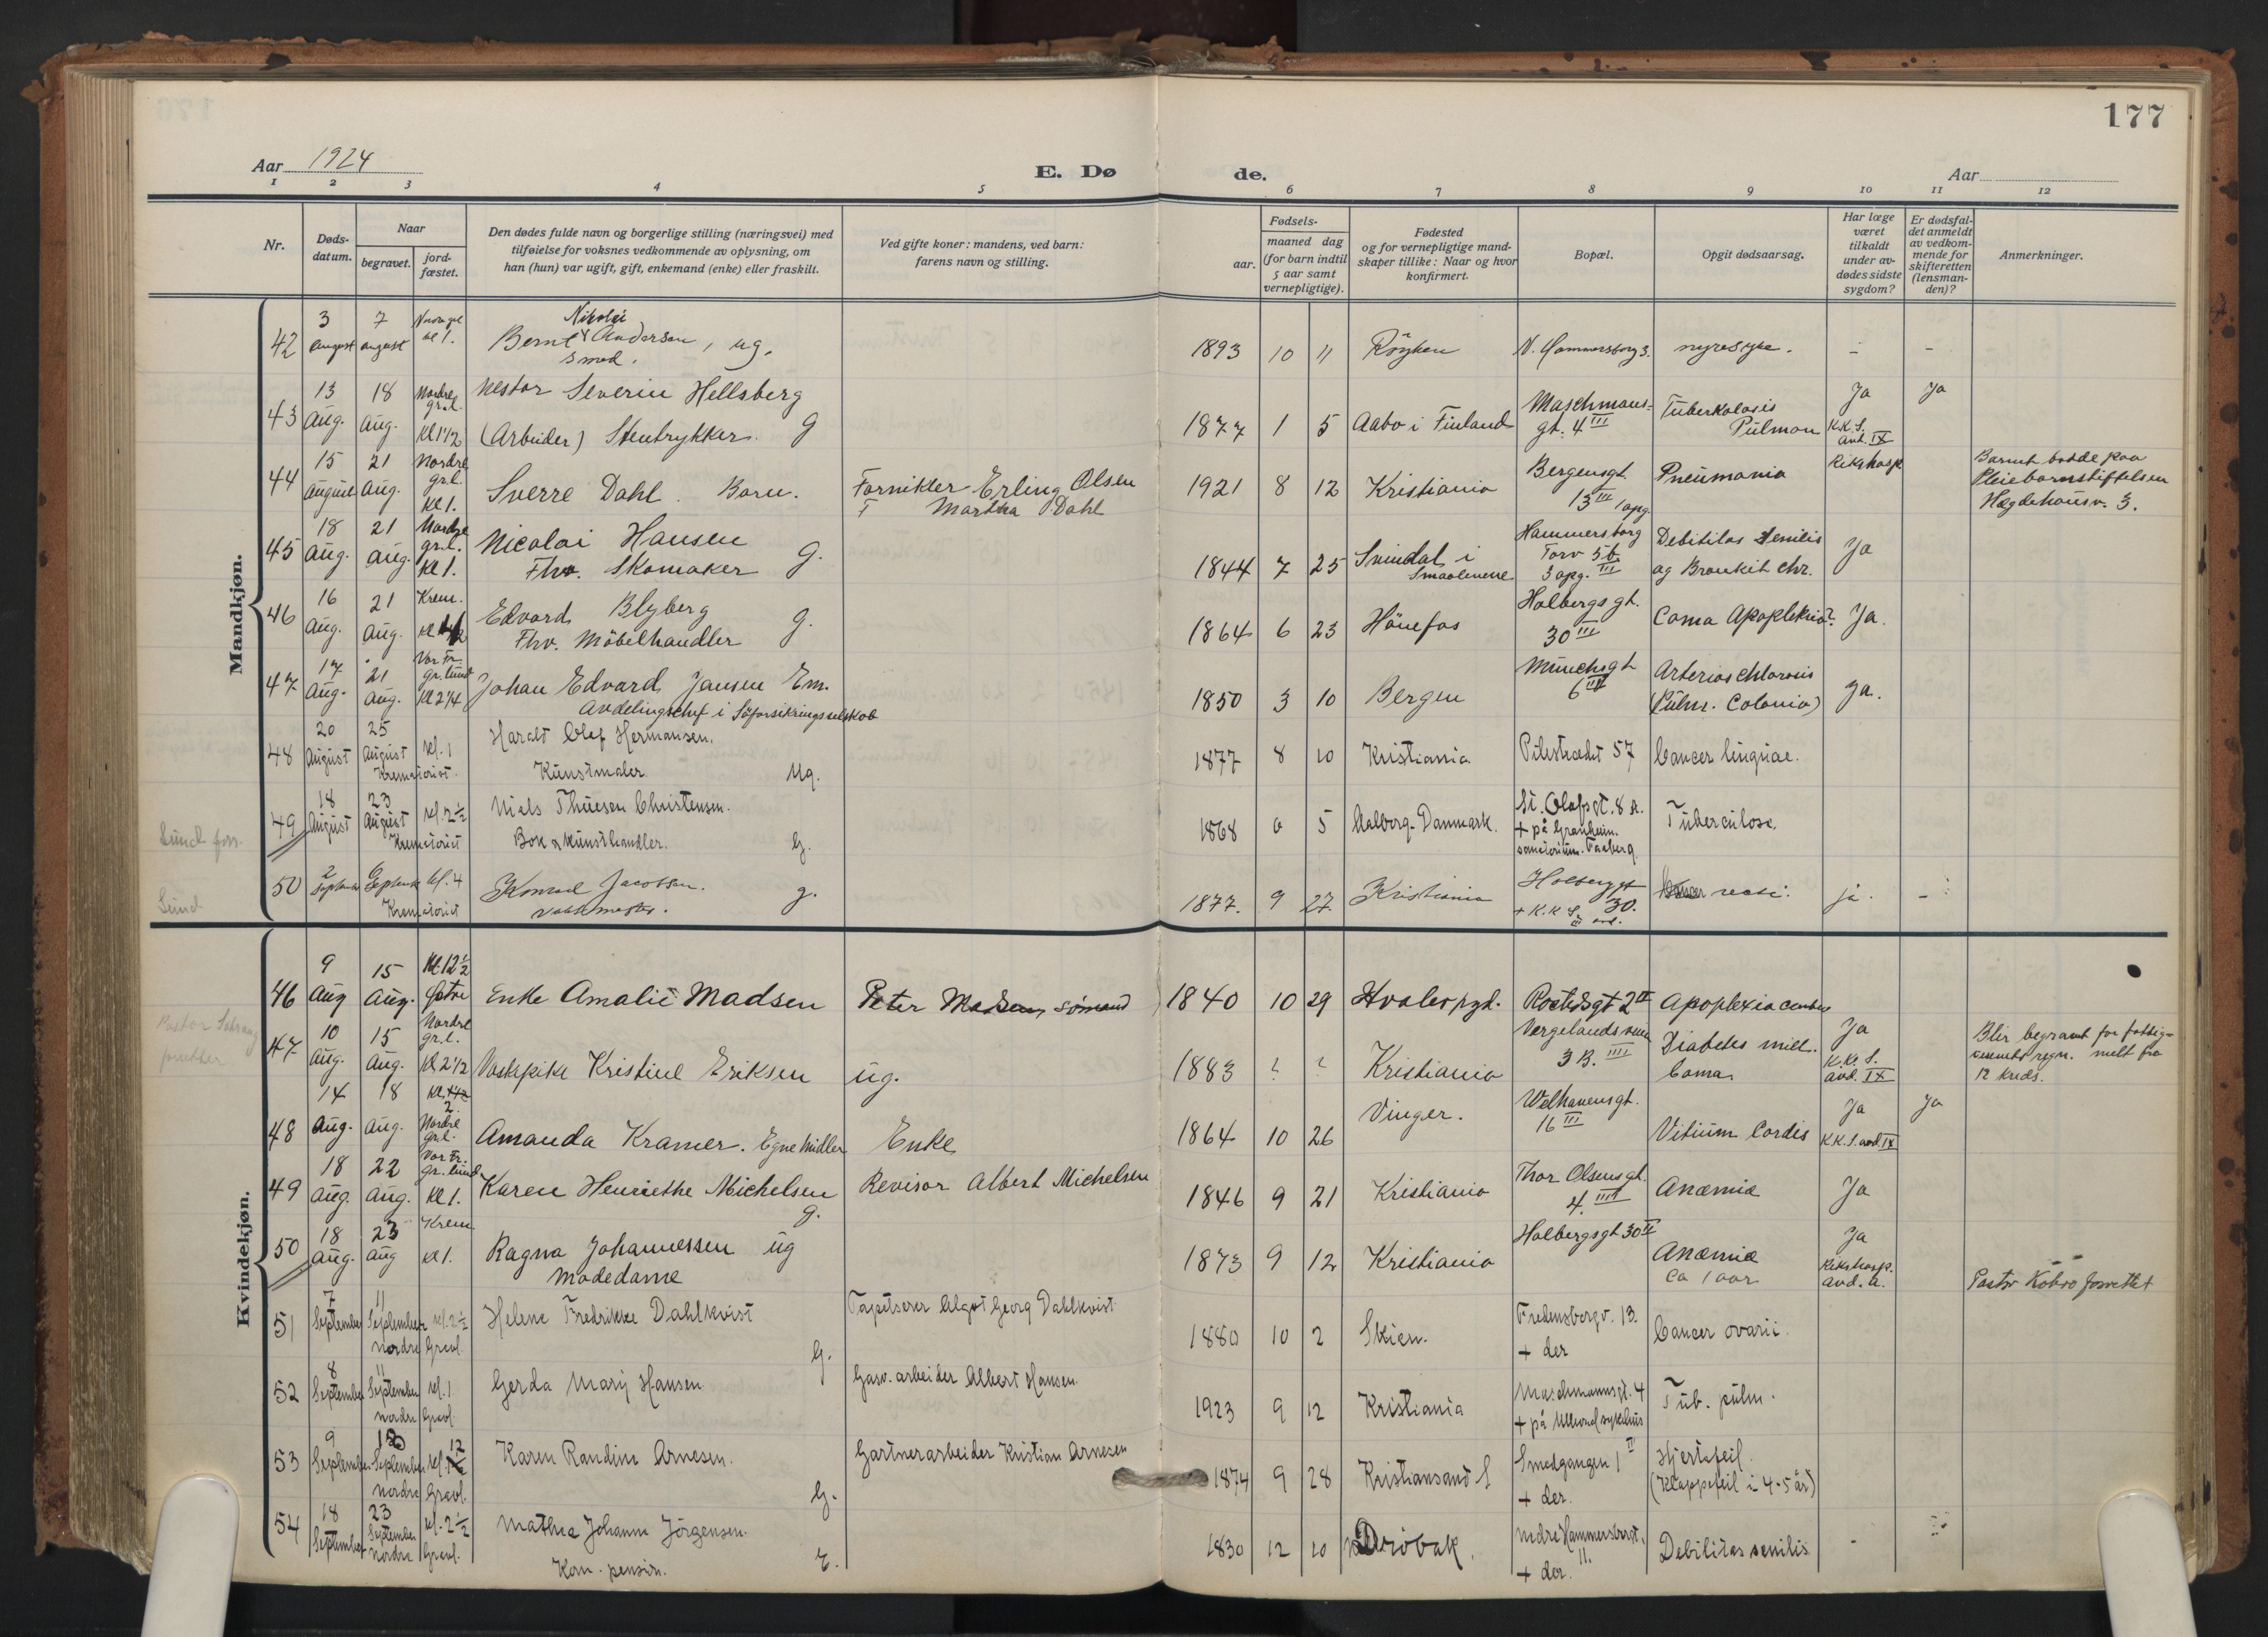 177
Aar 1924
E. Dø
de.
Aar
1 2 3 4 5 6 7 8 9 10 11 12
Nr.
Døds-
datum.
Naar
begravet.
jord-
fæstet.
Den dødes fulde navn og borgerlige stilling (næringsvei) med
tilføielse for voksnes vedkommende av oplysning, om
han (hun) var ugift, gift, enkemand (enke) eller fraskilt.
Ved gifte koner: mandens, ved barn:
farens navn og stilling.
Fødsels-
aar.
maaned dag
(for barn indtil
5 aar samt
vernepligtige).
Fødested
og for vernepligtige mand-
skaper tillike: Naar og hvor
konfirmert.
Bopæl.
Opgit dødsaarsag.
Har læge
været
tilkaldt
under av-
dødes sidste
sygdom?
Er dødsfal-
det anmeldt
av vedkom-
mende for
skifteretten
(lensman-
den)?
Anmerkninger.
Mandkjøn.
42 3 august 7 august kl 1.
Nikolai
Bernt Andersen, ug.
Smed.
1893 10 11 Röyken N. Hammersborg 3. nyresyke. - -
43 13 Aug. 18 Aug. Nordre gr.l. Kl 1 1/2
Nestor Severin Hellsberg
(Arbeider) Stentrykker. G
1877 1 5 Aabo i Finland Maschmans=
gt. 4 III
Tuberkolosis
Pulmon
Ja
K.K.S.
avd. IX
Ja
44 15 August 21 Aug. Nordre gr.l. Kl 1.
Sverre Dahl. Barn.
Fornikler Erling Olsen
Martha Dahl
1921 8 12 Kristiania Bergensgt.
13 III 1 opg.
Pneumonia Rikshosp
Barnet bodde paa
Pleiebarnstiftelsen
Hægdehausv. 3.
45 18 Aug. 21 Aug. Nordre gr.l. Kl 1.
Nicolai Hansen
Fhv. Skomaker G.
1844 7 25 Svindal i
Smaalenene
Hammersborg
Torv 5b
3 opg. III
Debilitas Senilis
og Bronkit chr.
Ja
46 16 Aug. 21 Aug. Krem.
Edvard Blyberg
Fhv. Möbelhandler g.
1864 6 23 Hönefos Holbergsgt.
30 III
Coma Apoplekia? Ja.
47 17 Aug. 21 Aug. Vor Fr. gr.lund Kl 2 1/4
Johan Edvard Jansen Em.
Avdelingschef i Söforsikringsselskab
1850 3 10 Bergen Munchsgt
6
Arterioschlorosis
(Pulm. Colonia)
Ja.
48 20 August 25 August kl. 1
Krematoriet.
Haralt Olaf Hermansen.
Kunstmaler. Ug.
1877 8 10 Kristiania Pilestrædet 57 Cancer linguae.
Sund forr.
49 18 August 23 August kl. 2 1/2
Krematoriet
Niels Thuesen Christensen.
Bok & kunsthandler. G.
1868 6 5 Aalborg-Danmark. St. Olafsgt. 8 A.
+ på Granheim.
sanatorium. Faaberg.
Tuberculose.
Sund
50 2 September 6 Septemb kl. 4
Krematoriet
Konrad Jacobsen.
Vaktmester. g.
1877. 9 27. Kristiania Holberggt
30.
+ K.K.S. III avd.
recti. ja. -
Kvindekjøn.
46 9 Aug 15 Aug. Kl 12 1/2 Østre
Enke Amalie Madsen
Peter Madsen, sømand
1840 10 29 Hvaler pgd. Rostedsgt 2 II Apoplexia cerebri
Pastor
47 10 Aug. 15 Aug. Nordre gr.l. Kl 2 1/2
Vaskepike Kristine Eriksen ug.
1883 ? ? Kristiania Vergelandsveien
3 B. IIII
Diabetes mell.
Coma.
Ja
K.K.S.
avd. IX
Blir begravet for fattig-
vesenets regn. melt fra
12 kreds.
48 14 Aug. 18 Aug. Kl. 2. Nordre gr.l.
Amanda Kramer. Egne Midler Enke
1864 10 26 Vinger. Welhavensgt.
16 III
Vitium Cordis
Ja
K.K.S. avd. IX
Ja
49 18 Aug. 22 Aug. Vor Fr. gr.lund Kl 1.
Karen Henriethe Michelsen
g.
Revisor Albert Michelsen
1846 9 21 Kristiania Thor Olsensgt.
4. IIII
Anæmia Ja
50 18 Aug. 23 Aug Krem. Kl 1.
Ragna Johannessen ug
Modedame
1873 9 12 Kristiania Holbergsgt 30 II
Anæmia
Ca 1 aar
Ja
Rikshosp.
avd. A.
Pastor Kobro forrettet
51 7 September 11 September kl. 2 1/2
Nordre Gravl.
Helene Fredrikke Dahlkvist
G.
Tapetserer Algot Georg Dahlkvist
1880 10 2 Skien. Fredensborgv. 13.
+ der
Cancer ovarii.
52 8 September 11 September kl. 1
Nordre Gravl.
Gerda Mary Hansen
Gasv. arbeider Albert Hansen.
1923 9 12 Kristiania Maschmannsgt. 4
+ på Ullevaal sykehus
Tub. pulm.
53 9 September September kl. 12
Nordre Gravl.
Karen Randine Arnesen.
G.
Gartnerarbeider Kristian Arnesen
1874 9 28 Kristiansand S Smedgangen 1 II
+ der.
Hjertefeil.
(Klappefeil i 4-5 år)
54 18 September 23 September kl. 2 1/2
Nordre Gravl.
Mathea Johanne Jörgensen.
Kom. pensin. E.
1830 12 10 Dröbak. Nedre Hammersborggt.
11.
+ der.
Debilitas senilis -